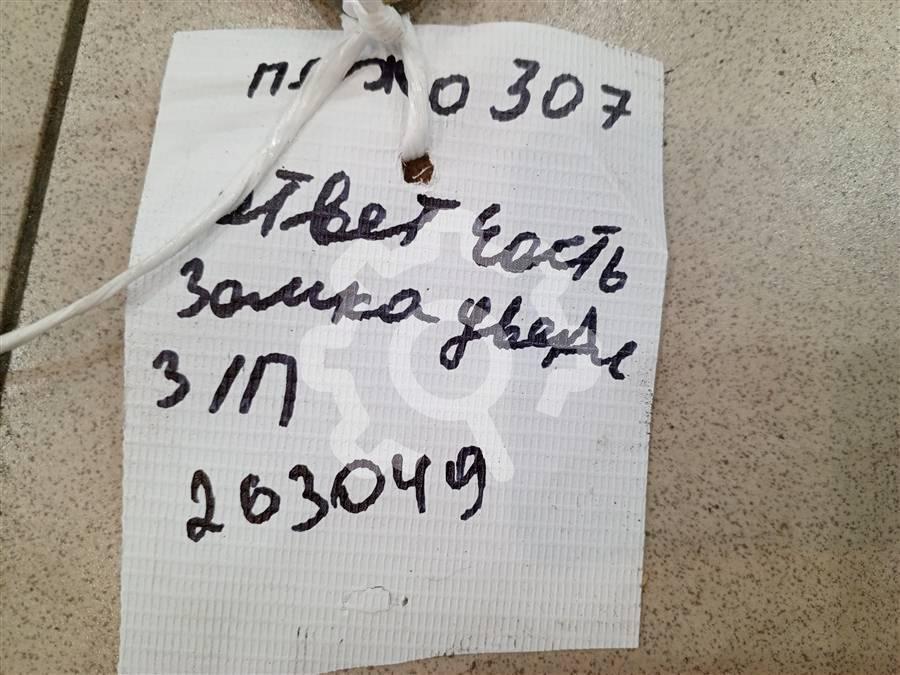 пяжо 307
ответ часть
замка двери
З/П
203049